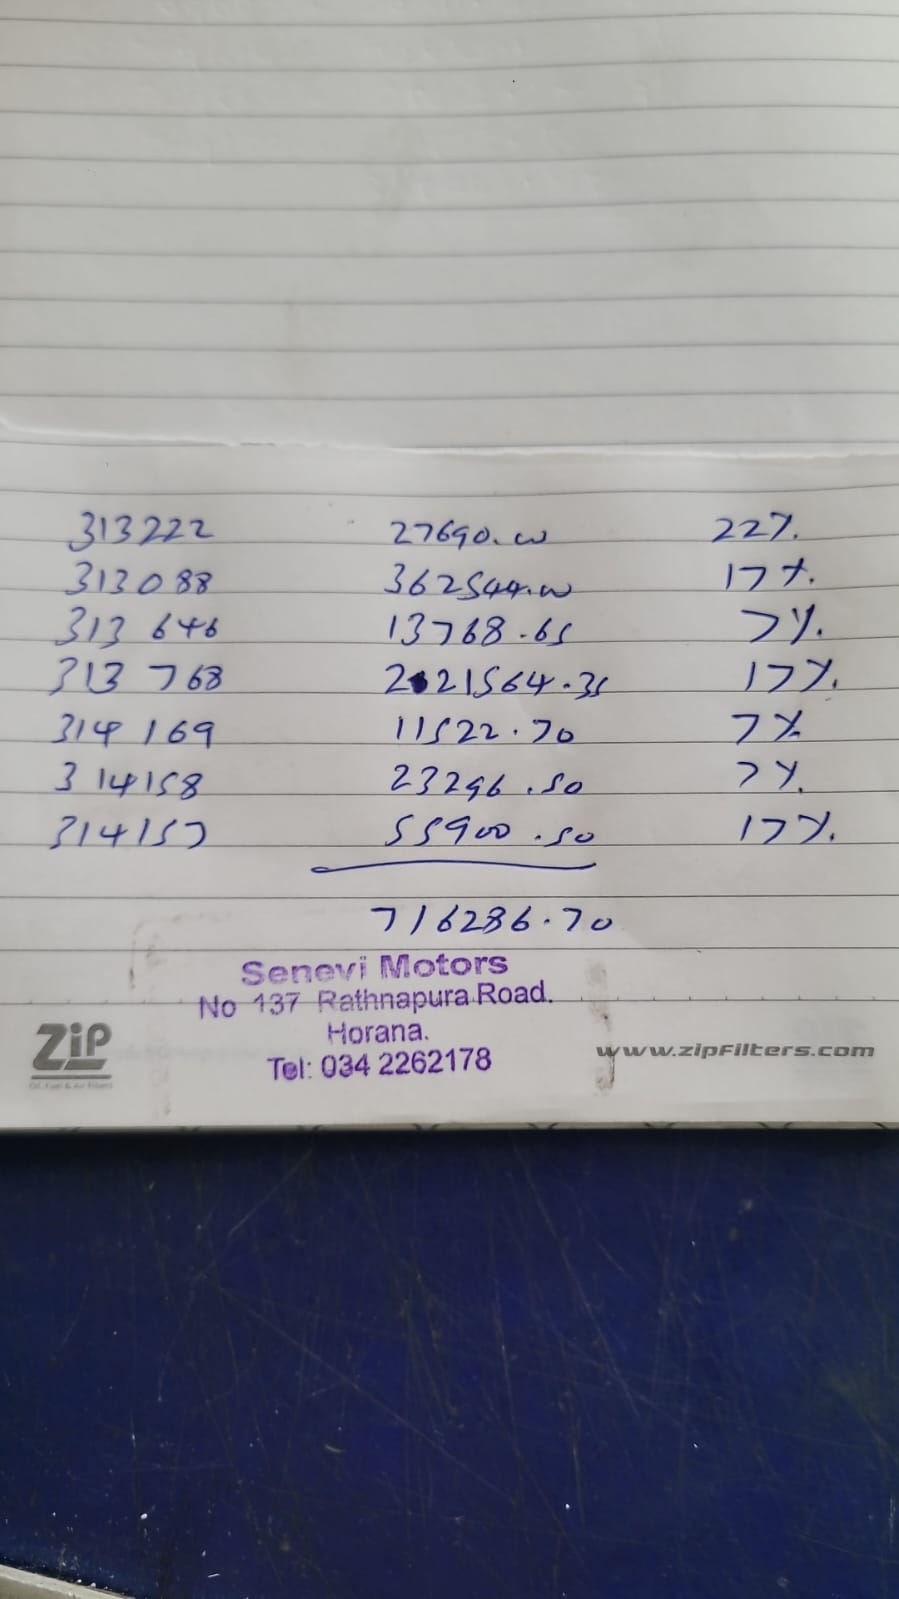 313222 27690.00 22%.
313088 362544.00 17%.
313 646 13768.65 7%.
313 768 221564.35 17%.
314 169 11522.70 7%
314158 23296.50 7%.
314157 55900.50 17%.
716286.70
Senevi Motors
No 137 Rathnapura Road.
Horana.
Tel: 034 2262178
ZiP
Oil, Fuel & Air Filters
www.zipFilters.com